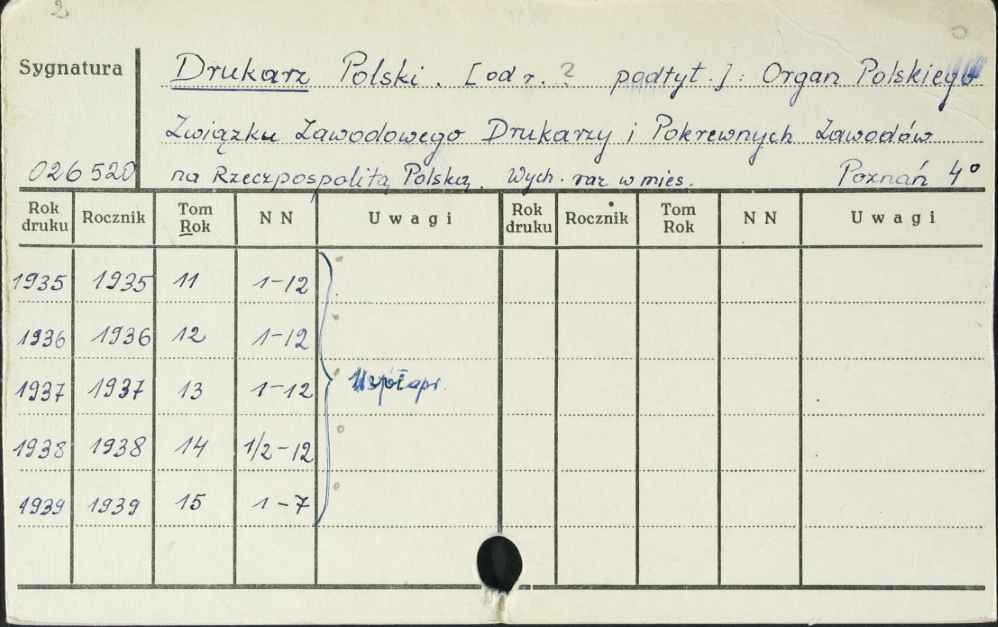 2
Sygnatura
Drukarz Polski. [od r. ? podtyt.]: Organ Polskiego
Związku Zawodowego Drukarzy i Pokrewnych Zawodów
026520 na Rzeczpospolitą Polską. Wych. raz w mies. Poznań 4°
Rok druku Rocznik Tom Rok N N Uwagi Rok druku Rocznik Tom Rok N N Uwagi
1935 1935 11 1-12
1936 1936 12 1-12
1937 1937 13 1-12 Współopr.
1938 1938 14 1/2-12
1939 1939 15 1-7